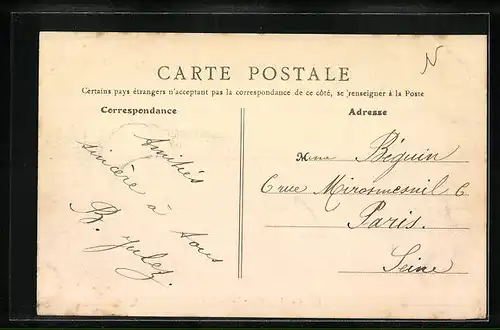 N
CARTE POSTALE
Certains pays étrangers n'acceptant pas la correspondance de ce côté, se renseigner à la Poste
Correspondance
Adresse
Amitiés
sincère à tous
B. Jules.
Mme Béguin
6 rue Miromesnil 6
Paris.
Seine